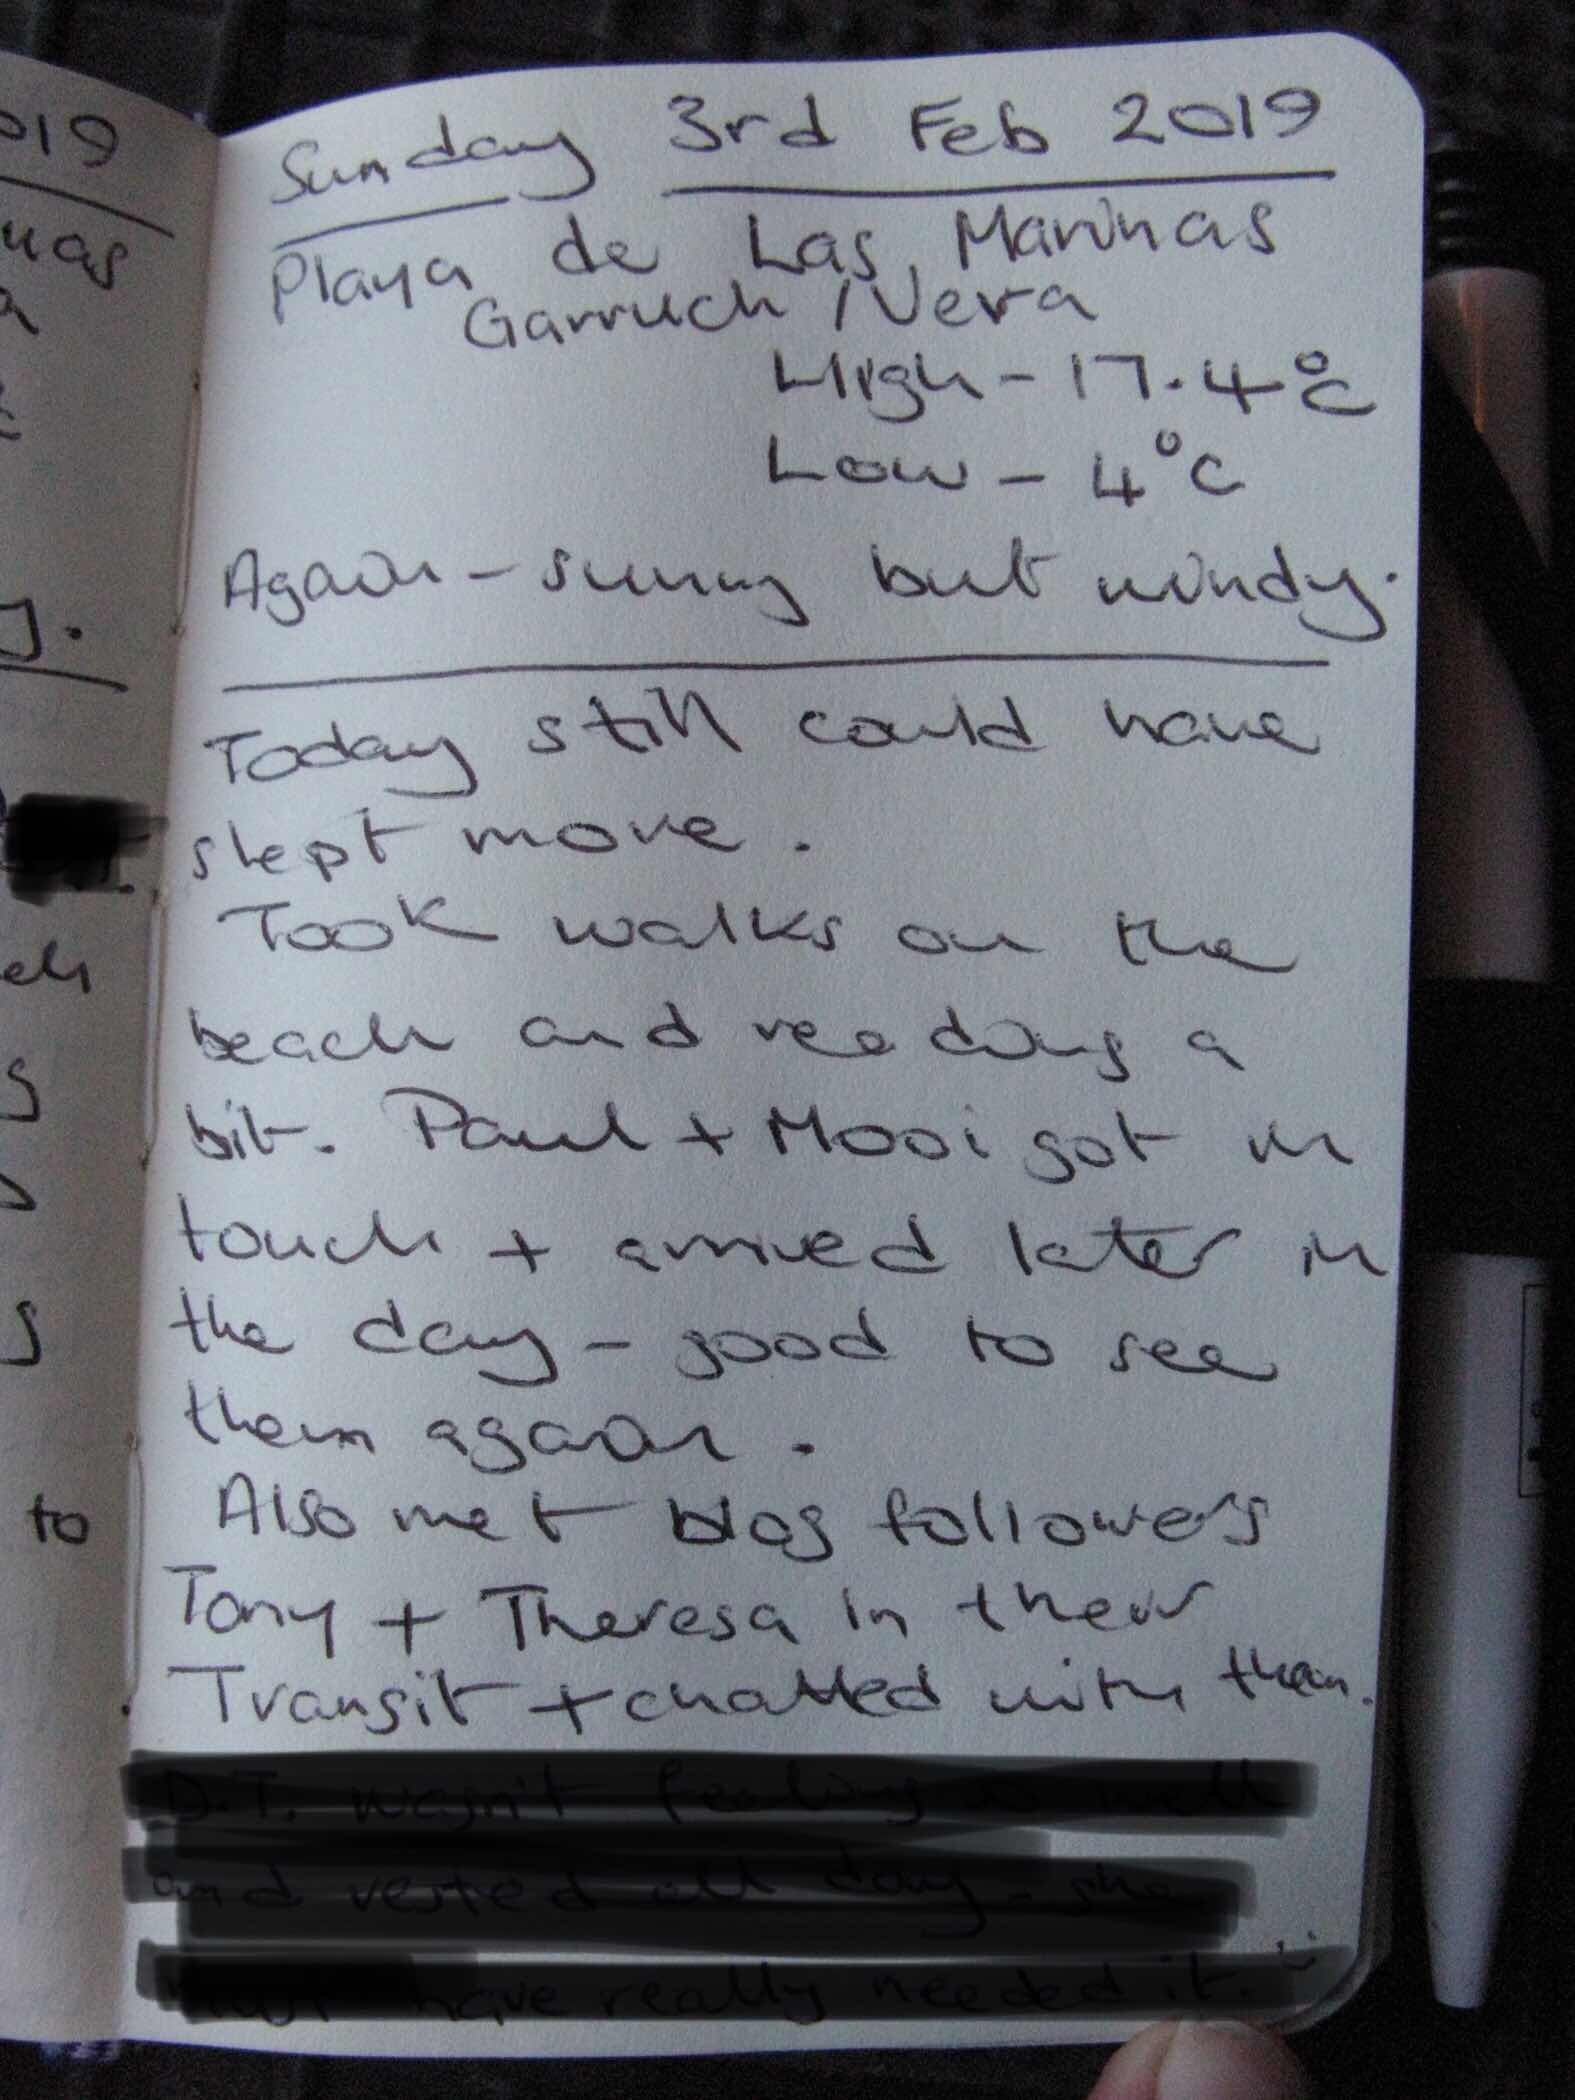 Sunday 3rd Feb 2019
Playa de Las Marinas
Garruch / Vera
High - 17.4°C
Low - 4°C
Again - sunny but windy.
Today still could have
slept more.
Took walks on the
beach and reading a
bit. Paul + Mooi got in
touch + arrived later in
the day - good to see
them again.
Also met blog followers
Tony + Theresa in their
Transit + chatted with them.